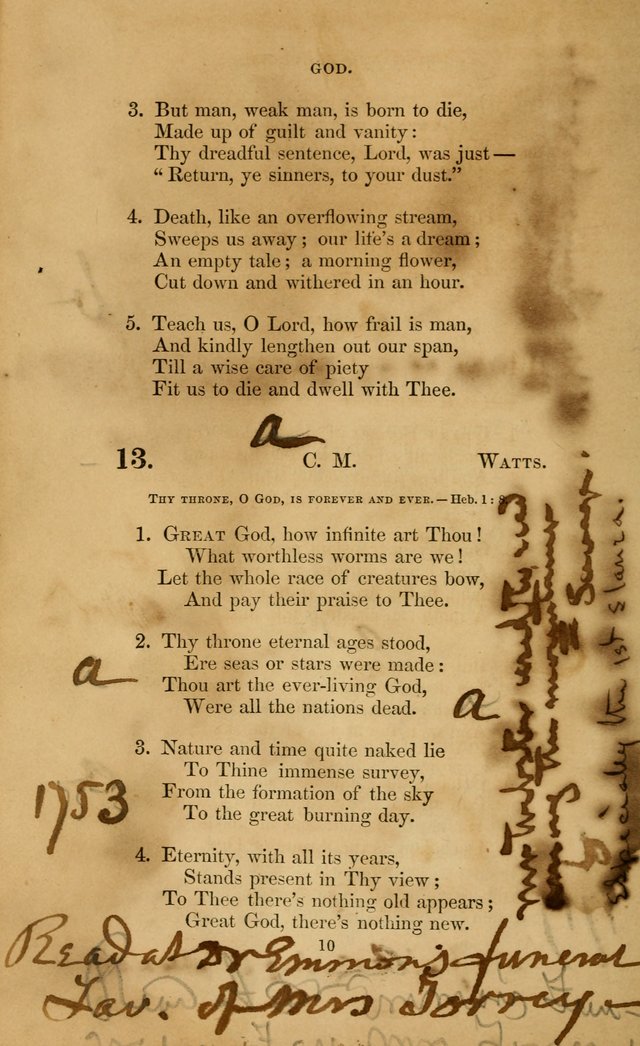 GOD.
3. But man, weak man, is born to die,
Made up of guilt and vanity:
Thy dreadful sentence, Lord, was just—
“Return, ye sinners, to your dust.”
4. Death, like an overflowing stream,
Sweeps us away; our life's a dream;
An empty tale; a morning flower,
Cut down and withered in an hour.
5. Teach us, O Lord, how frail is man,
And kindly lengthen out our span,
Till a wise care of piety
Fit us to die and dwell with Thee.
a
13. C. M. WATTS.
THY THRONE, O GOD, IS FOREVER AND EVER.—Heb. 1: 8.
1. GREAT God, how infinite art Thou!
What worthless worms are we!
Let the whole race of creatures bow,
And pay their praise to Thee.
2. Thy throne eternal ages stood,
Ere seas or stars were made:
a
Thou art the ever-living God,
Were all the nations dead.
a
3. Nature and time quite naked lie
To Thine immense survey,
From the formation of the sky
To the great burning day.
1753
4. Eternity, with all its years,
Stands present in Thy view;
To Thee there's nothing old appears;
Great God, there's nothing new.
10
Read at Dr Emmon's funeral
Fav. of Mrs Torrey.
Mr Webster
among the mountains
Especially the 1st stanza.